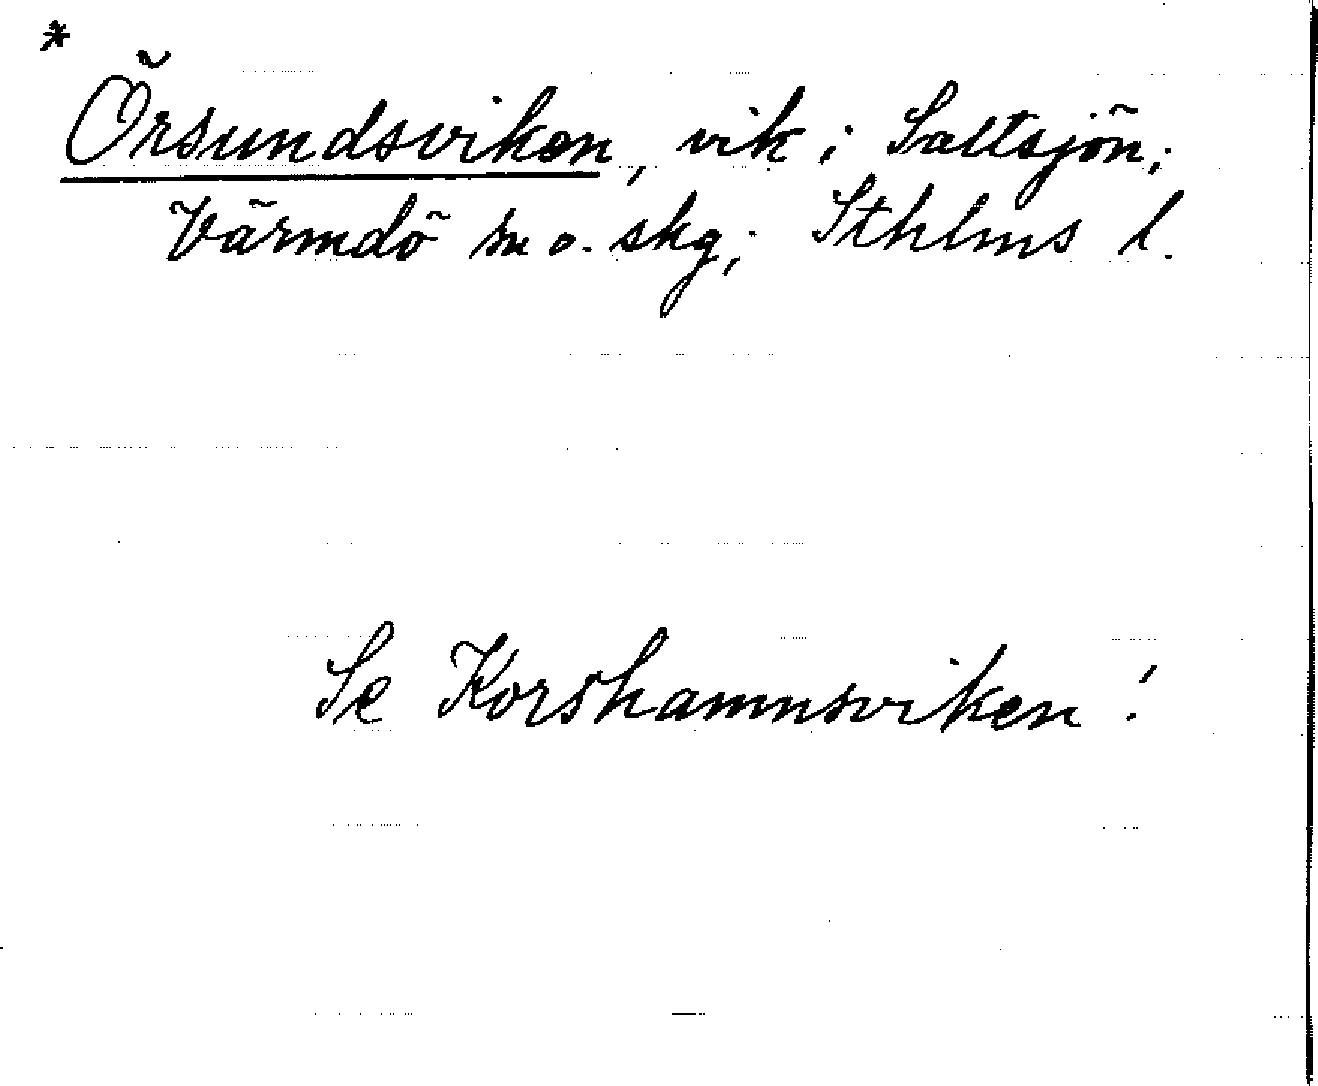 *
Örsundsviken, vik i Saltsjön;
Värmdö sn o. skg; Sthlms l.
Se Korshamnsviken!